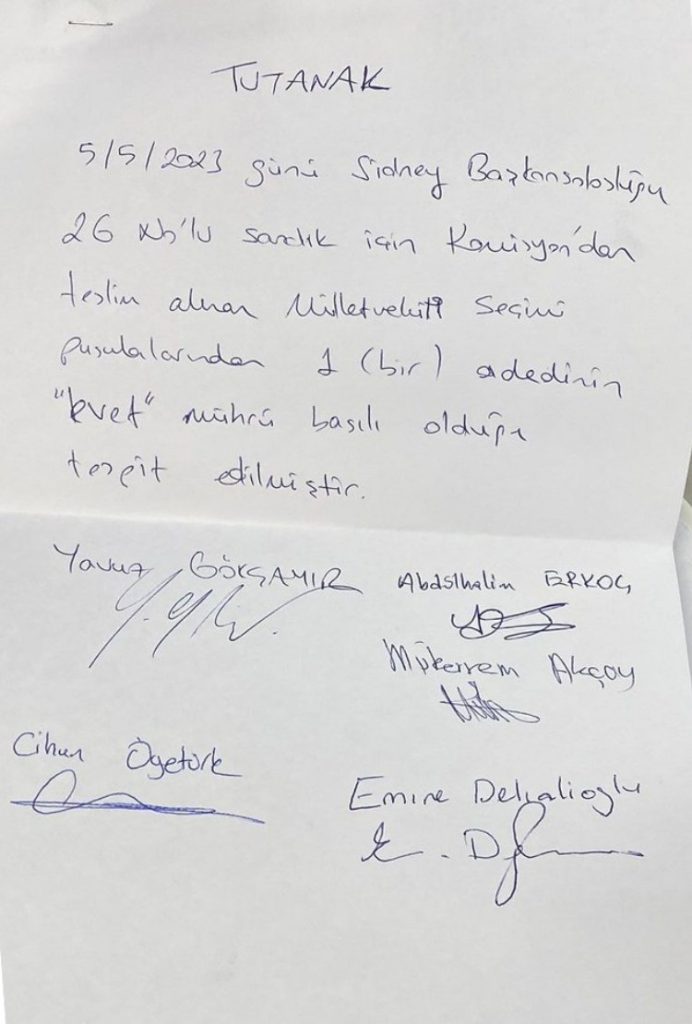 TUTANAK
5/5/2023 günü Sidney Başkonsolosluğu
26 No'lu sandık için Komisyon'dan
teslim alınan Milletvekili Seçimi
pusulalarından 1 (bir) adedinin
"Evet" mührü basılı olduğu
tespit edilmiştir.
Yavuz GÖKÇAMIR Abdslhalim ERKOÇ
Mükerrem Akçay
Cihan Ögetürk
Emine Delialioglu
E. D